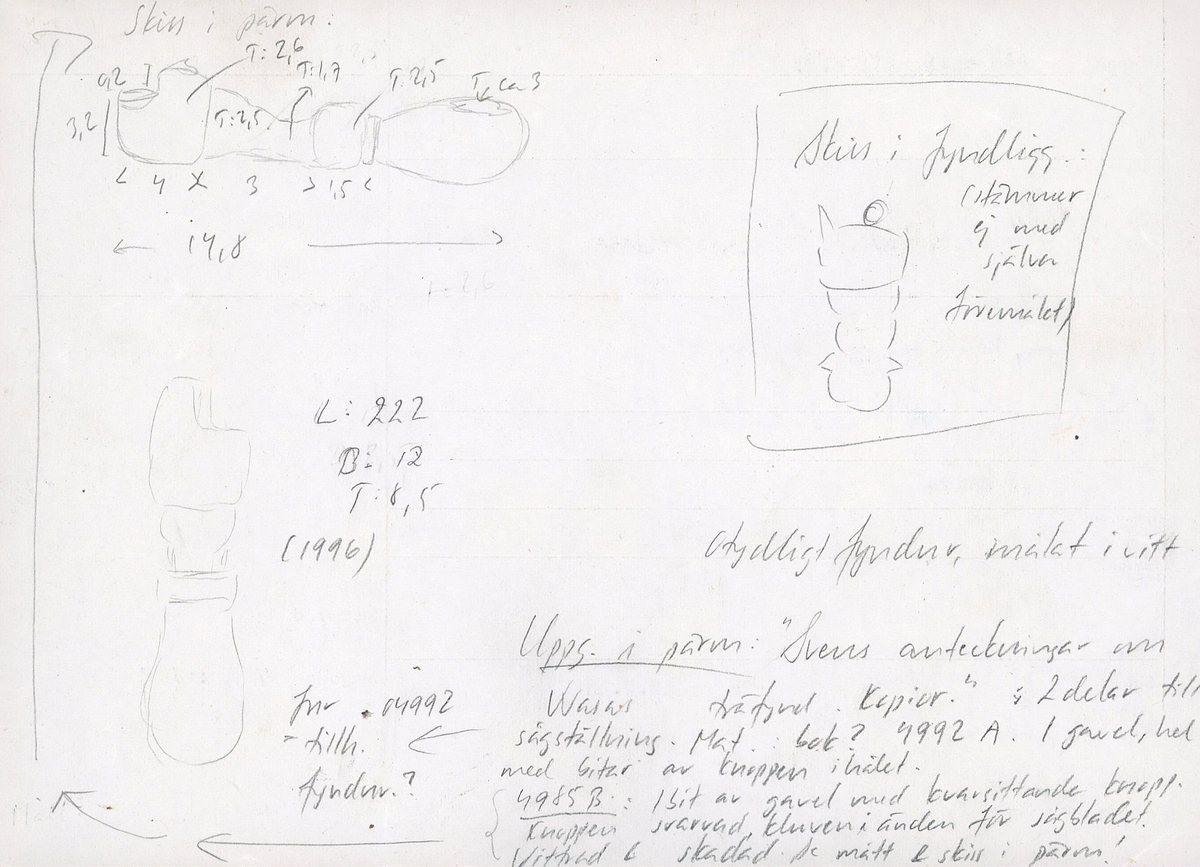 Skiss i pärm:
0,2
T: 2,6
T: 1,7
T: 2,5
T ca 3
3,2
T: 2,5
4
3
1,5
14,8
Skiss i fyndligg.:
(stämmer
ej med
själva
föremålet)
L: 222
B: 12
T: 8,5
(1996)
Otydligt fyndnr, målat i vitt
Uppg. i pärm: "Svens anteckningar om
Wasas träfynd. Kopior." : 2 delar till
sågställning. Mat.: bok? 4992 A. 1 gavel, hel
med bitar av knoppen i hålet.
4985 B: 1 bit av gavel med kvarsittande knopp.
Knoppen svarvad, kluven i änden för sågbladet.
Vittrad & skadad. Se mått & skiss i pärm
fnr 04992
tillh.
fyndnr.?